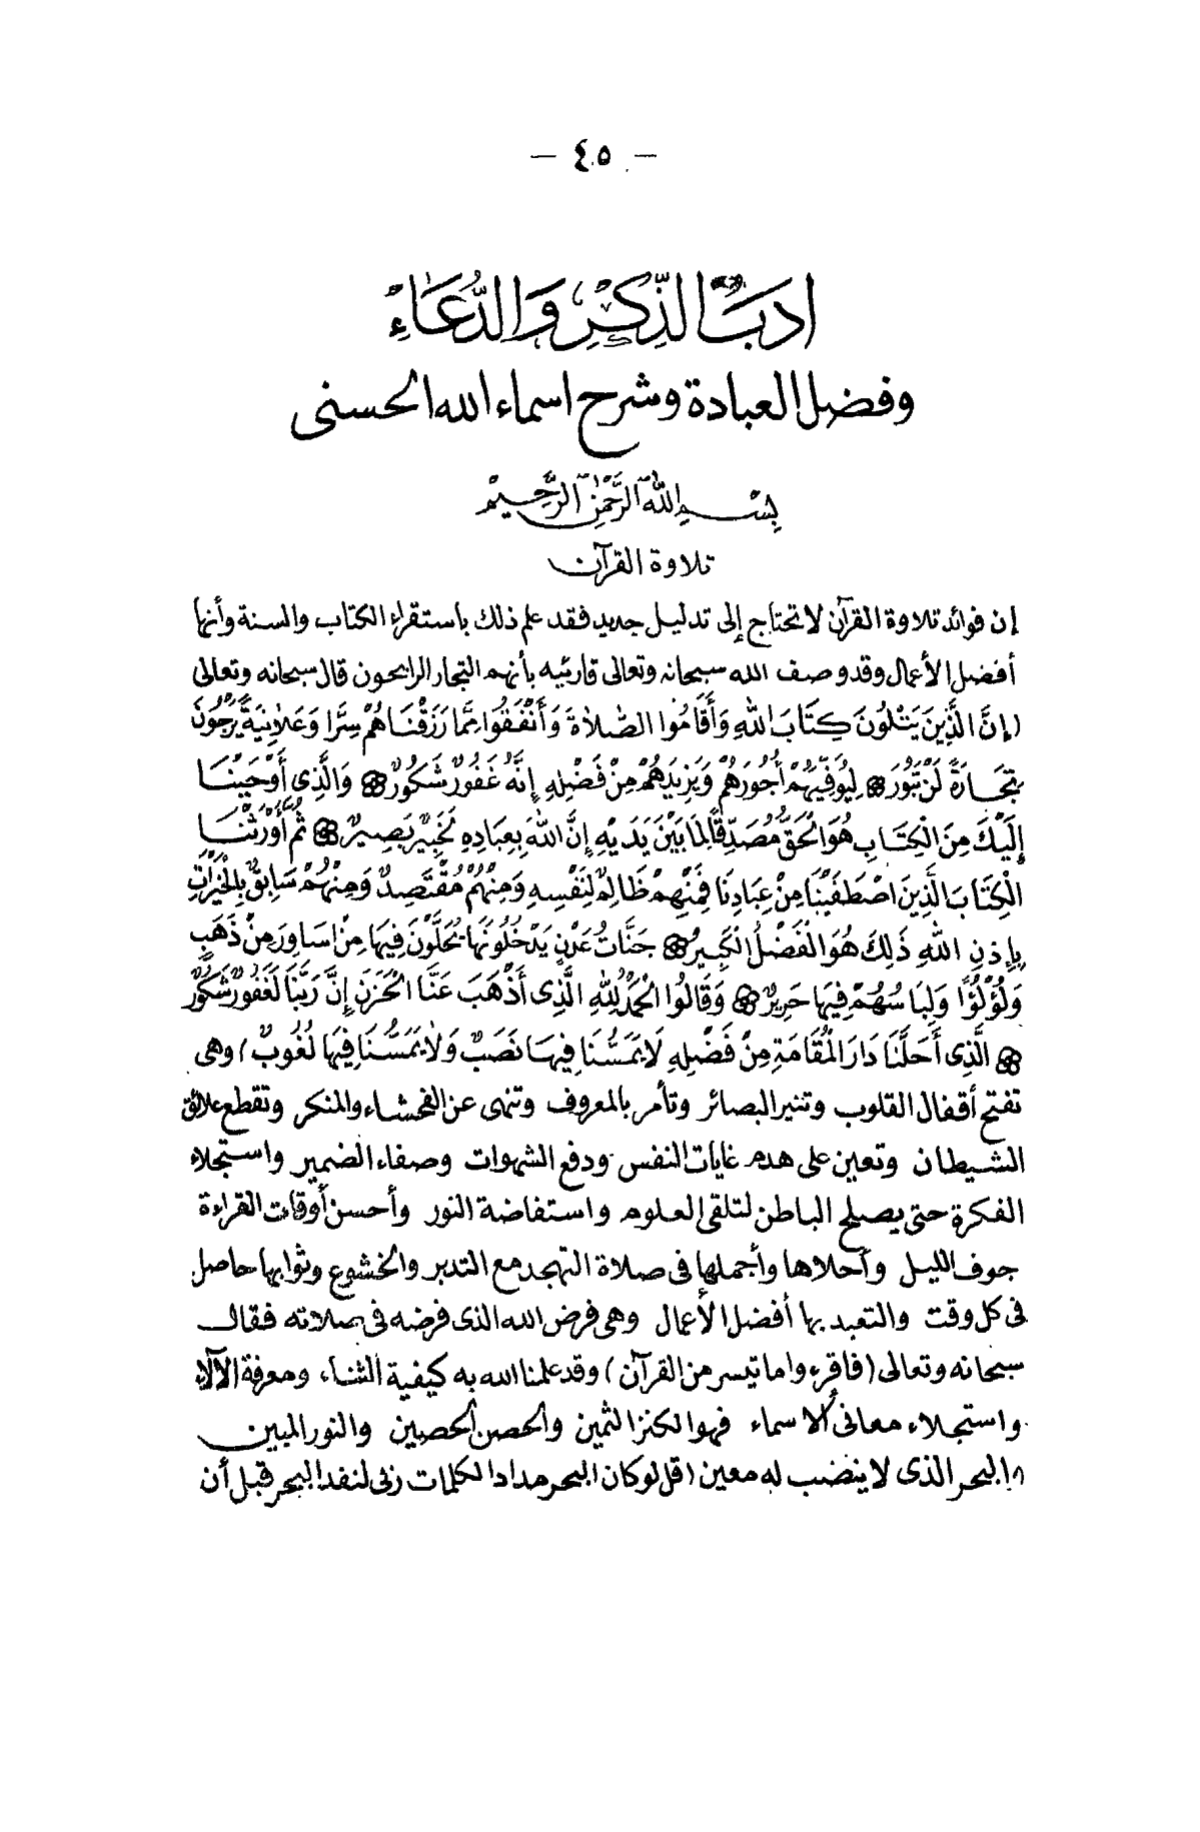 — ٤٥ —
ادَبُ الذِّكْرِ وَالدُّعَاءِ
وفضل العبادة وشرح اسماء الله الحسنى
بِسْمِ اللهِ الرَّحْمٰنِ الرَّحِيمِ
تلاوة القرآن
إن فوائد تلاوة القرآن لا تحتاج إلى تدليل جديد فقد علم ذلك باستقراء الكتاب والسنة وأنها
أفضل الأعمال وقد وصف الله سبحانه وتعالى قارئيه بأنهم التجار الرابحون قال سبحانه وتعالى
(إِنَّ الَّذِينَ يَتْلُونَ كِتَابَ اللهِ وَأَقَامُوا الصَّلاَةَ وَأَنْفَقُوا مِمَّا رَزَقْنَاهُمْ سِرًّا وَعَلاَنِيَةً يَرْجُونَ
تِجَارَةً لَنْ تَبُورَ ۝ لِيُوَفِّيَهُمْ أُجُورَهُمْ وَيَزِيدَهُمْ مِنْ فَضْلِهِ إِنَّهُ غَفُورٌ شَكُورٌ ۝ وَالَّذِى أَوْحَيْنَا
إِلَيْكَ مِنَ الْكِتَابِ هُوَ الْحَقُّ مُصَدِّقًا لِمَا بَيْنَ يَدَيْهِ إِنَّ اللهَ بِعِبَادِهِ لَخَبِيرٌ بَصِيرٌ ۝ ثُمَّ أَوْرَثْنَا
الْكِتَابَ الَّذِينَ اصْطَفَيْنَا مِنْ عِبَادِنَا فَمِنْهُمْ ظَالِمٌ لِنَفْسِهِ وَمِنْهُمْ مُقْتَصِدٌ وَمِنْهُمْ سَابِقٌ بِالْخَيْرَاتِ
بِإِذنِ اللهِ ذَلِكَ هُوَ الْفَضْلُ الْكَبِيرُ ۝ جَنَّاتُ عَدْنٍ يَدْخُلُونَهَا يُحَلَّوْنَ فِيهَا مِنْ اسَاوِرَ مِنْ ذَهَبٍ
وَلُؤْلُؤًا وَلِبَاسُهُمْ فِيهَا حَرِيرٌ ۝ وَقَالُوا الْحَمْدُ لِلهِ الَّذِى أَذْهَبَ عَنَّا الْحَزَنَ إِنَّ رَبَّنَا لَغَفُورٌ شَكُورٌ
۝ الَّذِى أَحَلَّنَا دَارَ الْمُقَامَةِ مِنْ فَضْلِهِ لاَ يَمَسُّنَا فِيهَا نَصَبٌ وَلاَ يَمَسُّنَا فِيهَا لُغُوبٌ) وهى
تفتح أقفال القلوب وتنير البصائر وتأمر بالمعروف وتنهى عن الفحشاء والمنكر وتقطع علائق
الشيطان وتعين على هدم غايات النفس ودفع الشهوات وصفاء الضمير واستجلاء
الفكرة حتى يصلح الباطن لتلقى العلوم واستفاضة النور وأحسن أوقات القراءة
جوف الليل وأحلاها وأجملها فى صلاة التهجد مع التدبر والخشوع وثوابها حاصل
فى كل وقت والتعبد بها أفضل الأعمال وهى فرض الله الذى فرضه فى صلاته فقال
سبحانه وتعالى (فاقرءوا ما تيسر من القرآن) وقد علمنا الله به كيفية الثناء ومعرفة الآلاء
واستجلاء معانى الاسماء فهو الكنز الثمين والحصن الحصين والنور المبين
والبحر الذى لا ينضب له معين (قل لو كان البحر مدادا لكلمات ربى لنفد البحر قبل أن